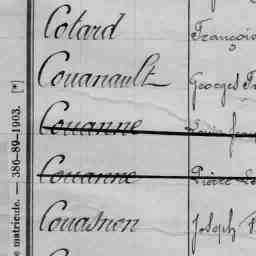 Cotard François
Couanault Georges
Couanne
Couanne Pierre
Couasnon Joseph
matricule. — 386-89-1903. [*]